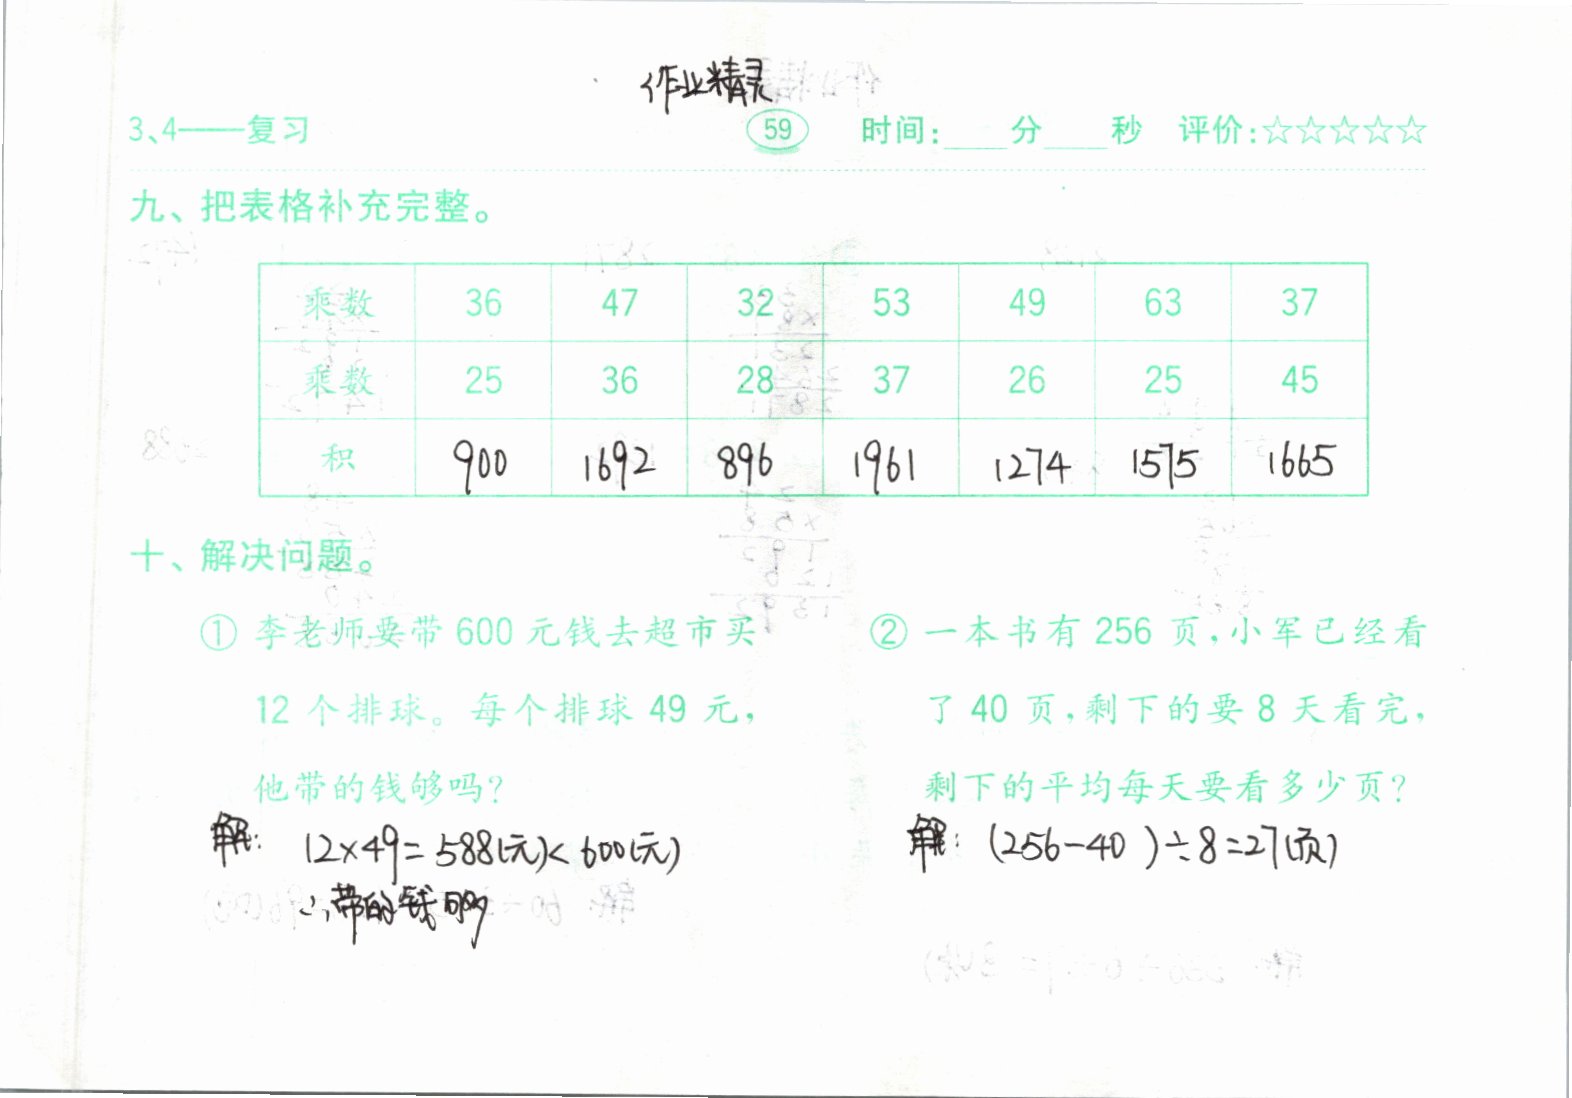 作业精灵
3、4——复习 59 时间:____分____秒 评价:☆☆☆☆☆
九、把表格补充完整。
乘数 36 47 32 53 49 63 37
乘数 25 36 28 37 26 25 45
积 900 1692 896 1961 1274 1575 1665
十、解决问题。
① 李老师要带 600 元钱去超市买
12 个排球。每个排球 49 元,
他带的钱够吗?
解: 12×49=588(元)<600(元)
∴带的钱够
② 一本书有 256 页,小军已经看
了 40 页,剩下的要 8 天看完,
剩下的平均每天要看多少页?
解: (256-40)÷8=27(页)